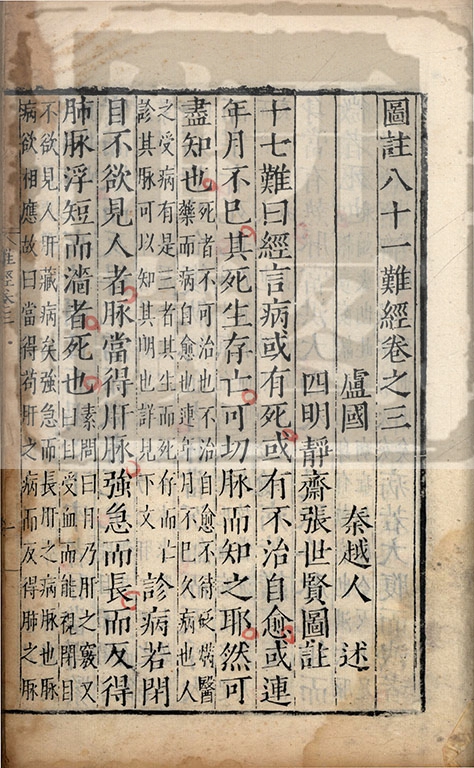 圖註八十一難經卷之三
盧國 秦越人 述
四明靜齋張世賢圖註
十七難曰經言病或有死或有不治自愈或連
年月不已其死生存亡可切脉而知之耶然可
盡知也死者不可治也不治自愈不待砭焫醫
藥而病自愈也連年月不已久病也人
之受病有是三者其生而死存而亡
診其脉可以知其明也詳見下文
診病若閉
目不欲見人者脉當得肝脉強急而長而反得
肺脉浮短而濇者死也素問曰目乃肝之竅又
曰目受血而能視閉目
不欲見人肝藏病矣強急而長肝之病脉也脉
病欲相應故曰當得苟肝之病而反得肺之脉